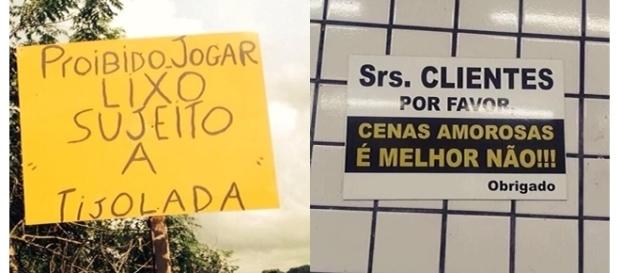 PROIBIDO JOGAR
LIXO
SUJEITO
A
TIJOLADA
Srs. CLIENTES
POR FAVOR
CENAS AMOROSAS
É MELHOR NÃO!!!
Obrigado